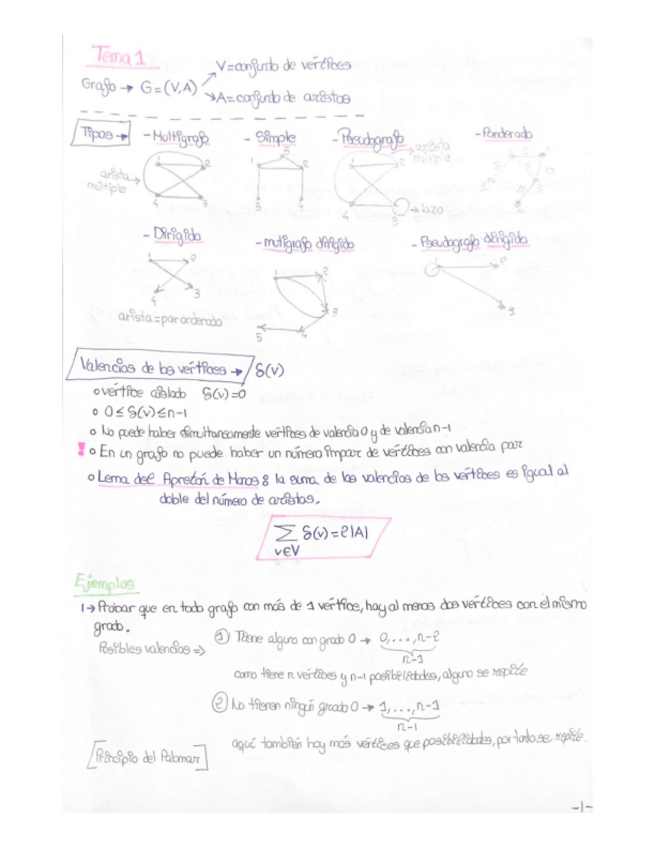 Tema 1
Grafo → G=(V,A)
V=conjunto de vértices
A=conjunto de aristas
Tipos →
- Multigrafo
- Simple
- Pseudografo
- Ponderado
arista múltiple
1 2 3 4
1 5 2 3 4
arista múltiple
1 2 3 4
→ lazo
- Dirigido
- multigrafo dirigido
- Pseudografo dirigido
1 2 3 4
1 2 3 4 5
1 2 3
arista = par ordenado
Valencias de los vértices → δ(v)
o vértice aislado δ(v)=0
o 0 ≤ δ(v) ≤ n-1
o No puede haber simultaneamente vértices de valencia 0 y de valencia n-1
! o En un grafo no puede haber un número impar de vértices con valencia par
o Lema del Apretón de Manos: la suma de las valencias de los vértices es igual al
doble del número de aristas.
∑ δ(v) = 2|A|
v∈V
Ejemplos
1 → Probar que en todo grafo con más de 1 vértice, hay al menos dos vértices con el mismo
grado.
Posibles valencias ⇒
① Tiene alguno con grado 0 → 0,...,n-2
n-1
como tiene n vértices y n-1 posibilidades, alguno se repite
② No tienen ningún grado 0 → 1,...,n-1
n-1
aquí también hay más vértices que posibilidades, por tanto se repite.
[Principio del Palomar]
-1-